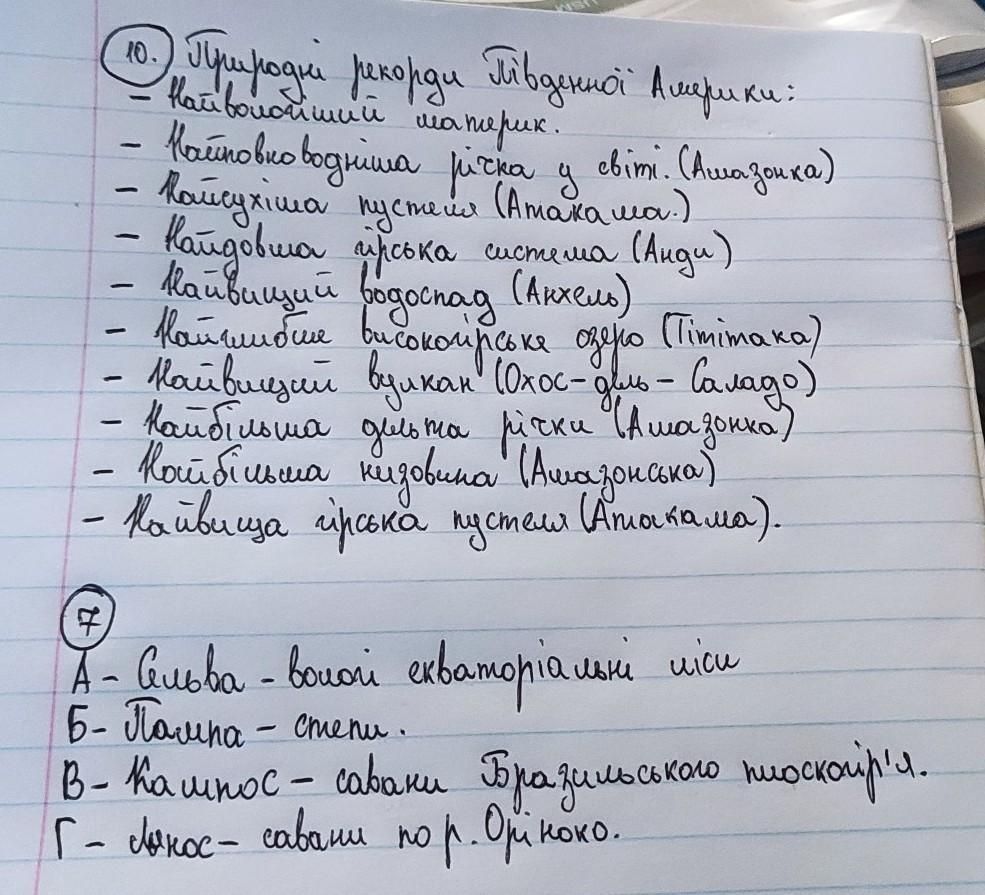 10. Природні рекорди Південної Америки:
- Найвологіший материк.
- Найповноводніша річка у світі. (Амазонка)
- Найсухіша пустеля (Атакама.)
- Найдовша гірська система (Анди)
- Найвищий водоспад (Анхель)
- Найглибше високогірське озеро (Тітітака)
- Найвищий вулкан (Охос-дель-Саладо)
- Найбільша дельта річки (Амазонка)
- Найбільша низовина (Амазонська)
- Найвища гірська пустеля (Атакама).
7
А - Сельва - вологі екваторіальні ліси
Б - Пампа - степи.
В - Кампос - савани Бразильського плоскогір'я.
Г - Льянос - савани по р. Оріноко.